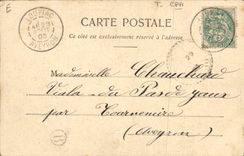 E
T. CPA
CARTE POSTALE
Ce côté est exclusivement réservé à l'adresse.
AVEYRON
Mademoiselle Chauchard
Viala-du Pas de Jaux
par Tournemire
(Aveyron)